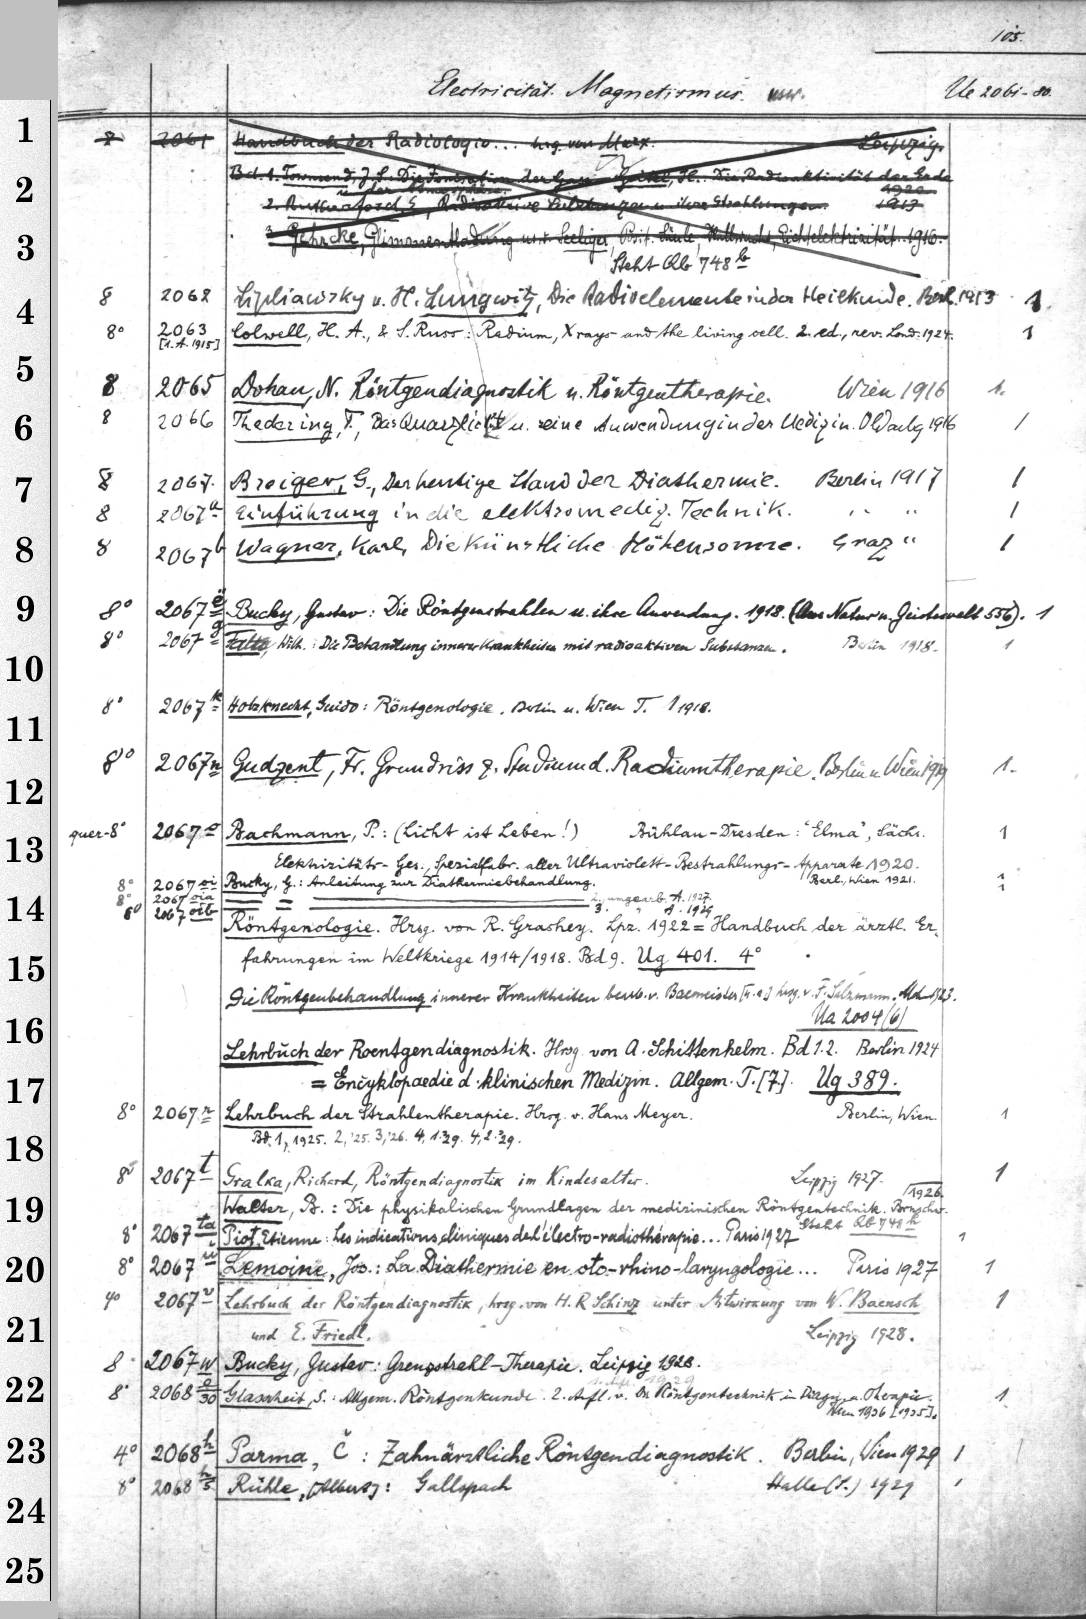 105.
Electricität. Magnetismus. usw. Ue 2061-80.
1
8 2061 Handbuch der Radiologie... hrsg. von Marx. Leipzig.
2
Bd. 1. Townsend, J. S. Die Ionisation der Gase. Gockel, A.: Die Radioaktivität der Erde
u. der Atmosphäre. 1920
2. Rutherford, E., Radioaktive Substanzen u. ihre Strahlungen. 1913
3
3. Gehrcke, Glimmentladung u.s.w. Seeliger, Posit. Säule, Hallwachs, Lichtelektrizität. 1916.
Steht Qb 748 b
4
8 2062 Lipliawsky u. H. Lungwitz, Die Radioelemente in der Heilkunde. Berl. 1913 1
8° 2063 Colwell, H. A., & S. Russ: Radium, X rays and the living cell. 2. ed., rev. Lond. 1924. 1
[1. A. 1915]
5
8 2065 Dohan, N. Röntgendiagnostik u. Röntgentherapie. Wien 1916 1.
6
8 2066 Thedering, F., Das Quarzlicht u. seine Anwendung in der Medizin. Oldenbg 1916 1
7
8 2067. Breiger, G., Der heutige Stand der Diathermie. Berlin 1917 1
8 2067a Einführung in die elektromediz. Technik. " " 1
8
8 2067b Wagner, Karl, Die künstliche Höhensonne. Graz " 1
9
8° 2067 Bucky, Gustav: Die Röntgenstrahlen u. ihre Anwendung. 1918. (Aus Natur u. Geisteswelt 556). 1
8° 2067g Falta, Wilh.: Die Behandlung innerer Krankheiten mit radioaktiven Substanzen. Berlin 1918. 1
10
8° 2067k Holzknecht, Guido: Röntgenologie. Berlin u. Wien T. 1 1918.
11
8° 2067n Gudzent, Fr. Grundriss z. Studium d. Radiumtherapie. Berlin u. Wien 1919 1.
12
quer-8° 2067o Bachmann, P.: (Licht ist Leben!) Bühlau-Dresden: "Elma", Sächs. 1
13
Elektrizitäts-Ges., Spezialfabr. aller Ultraviolett-Bestrahlungs-Apparate 1920.
8° 2067oi Bucky, G.: Anleitung zur Diathermiebehandlung. Berl., Wien 1921. 1
8° 2067oia — = — 2. umgearb. A. 1927. 1
14
8° 2067oib — = — 3. " A. 1929
Röntgenologie. Hrsg. von R. Grashey. Lpz. 1922 = Handbuch der ärztl. Er-
15
fahrungen im Weltkriege 1914/1918. Bd 9. Ug 401. 4°
Die Röntgenbehandlung innerer Krankheiten bearb. v. Bacmeister [u.a.] hrsg. v. F. Salzmann. Mch. 1923.
16
Ua 2004(6)
Lehrbuch der Roentgendiagnostik. Hrsg von A. Schittenhelm. Bd 1.2. Berlin 1924
17
= Encyklopaedie d. klinischen Medizin. Allgem. T. [7]. Ug 389.
8° 2067r Lehrbuch der Strahlentherapie. Hrsg. v. Hans Meyer. Berlin, Wien. 1
18
Bd. 1, 1925. 2, '25. 3, '26. 4, 1. '29. 4, 2. '29.
8° 2067t Gralka, Richard, Röntgendiagnostik im Kindesalter. Leipzig 1927. 1
19
Walter, B.: Die physikalischen Grundlagen der medizinischen Röntgentechnik. Brnschw. 1926.
Steht Qb 748 h
8° 2067ta Piot, Etienne: Les indications cliniques de l'électro-radiothérapie... Paris 1927 1
20
8° 2067u Lemoine, Jos.: La Diathermie en oto-rhino-laryngologie... Paris 1927 1
4° 2067v Lehrbuch der Röntgendiagnostik, hrsg. von H. R Schinz unter Mitwirkung von W. Baensch 1
21
und E. Friedl. Leipzig 1928.
8 2067w Bucky, Gustav: Grenzstrahl-Therapie. Leipzig 1928.
22
1. Aufl. 1929
8° 2068 a/30 Glasscheib, S.: Allgem. Röntgenkunde. 2. Aufl. v. Die Röntgentechnik in Diagn. u. Therapie. 1
Wien 1936 [1935].
23
4° 2068h Parma, Č: Zahnärztliche Röntgendiagnostik. Berlin, Wien 1929 1
8° 2068 h/5 Rühle, [Albert]: Gallspach Halle (S.) 1929 1
24
25